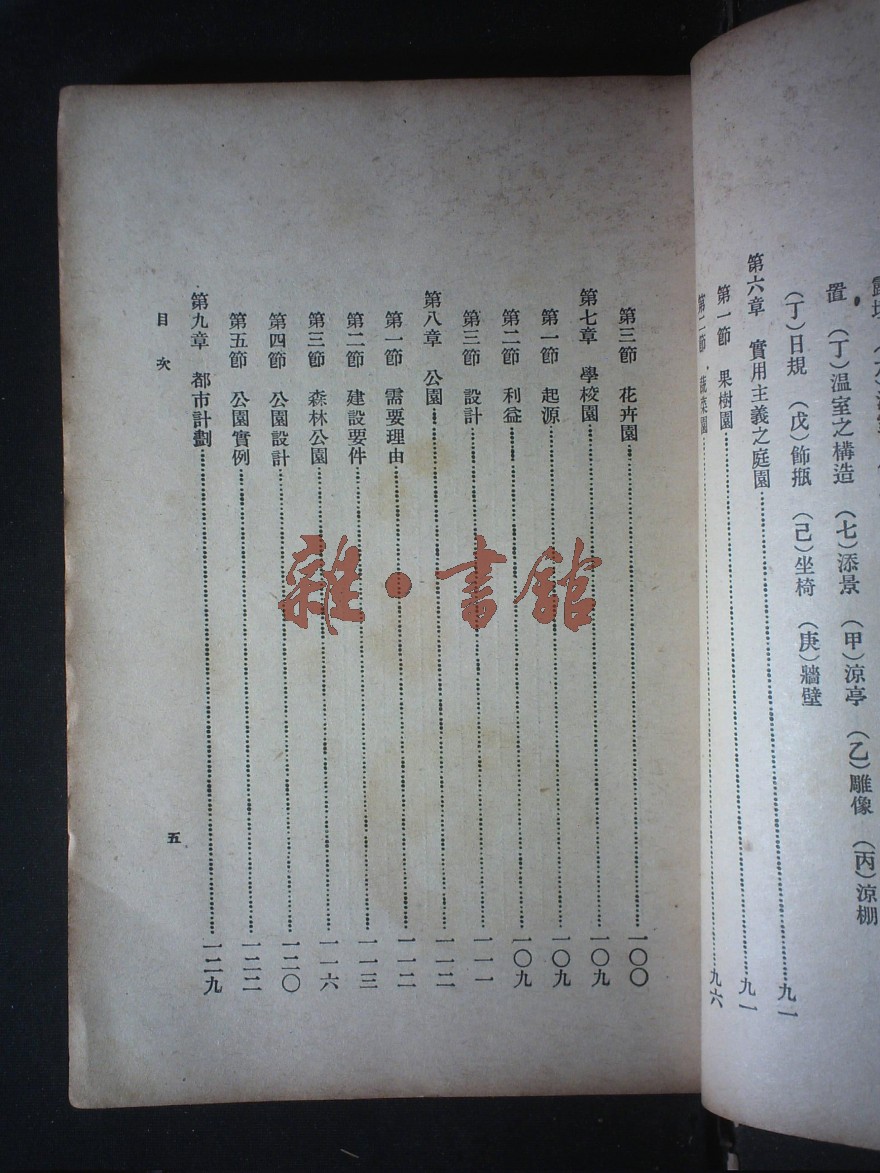 置　(丁)溫室之構造　(七)添景　(甲)涼亭　(乙)雕像　(丙)涼棚
(丁)日規　(戊)飾瓶　(己)坐椅　(庚)牆壁
第六章　實用主義之庭園……九一
第一節　果樹園……九一
第二節　蔬菜園……九六
第三節　花卉園……一〇〇
第七章　學校園……一〇九
第一節　起源……一〇九
第二節　利益……一〇九
第三節　設計……一一一
第八章　公園……一一二
第一節　需要理由……一一二
第二節　建設要件……一一三
第三節　森林公園……一一六
第四節　公園設計……一二〇
第五節　公園實例……一二二
第九章　都市計劃……一二九
目次
五
雜·書館